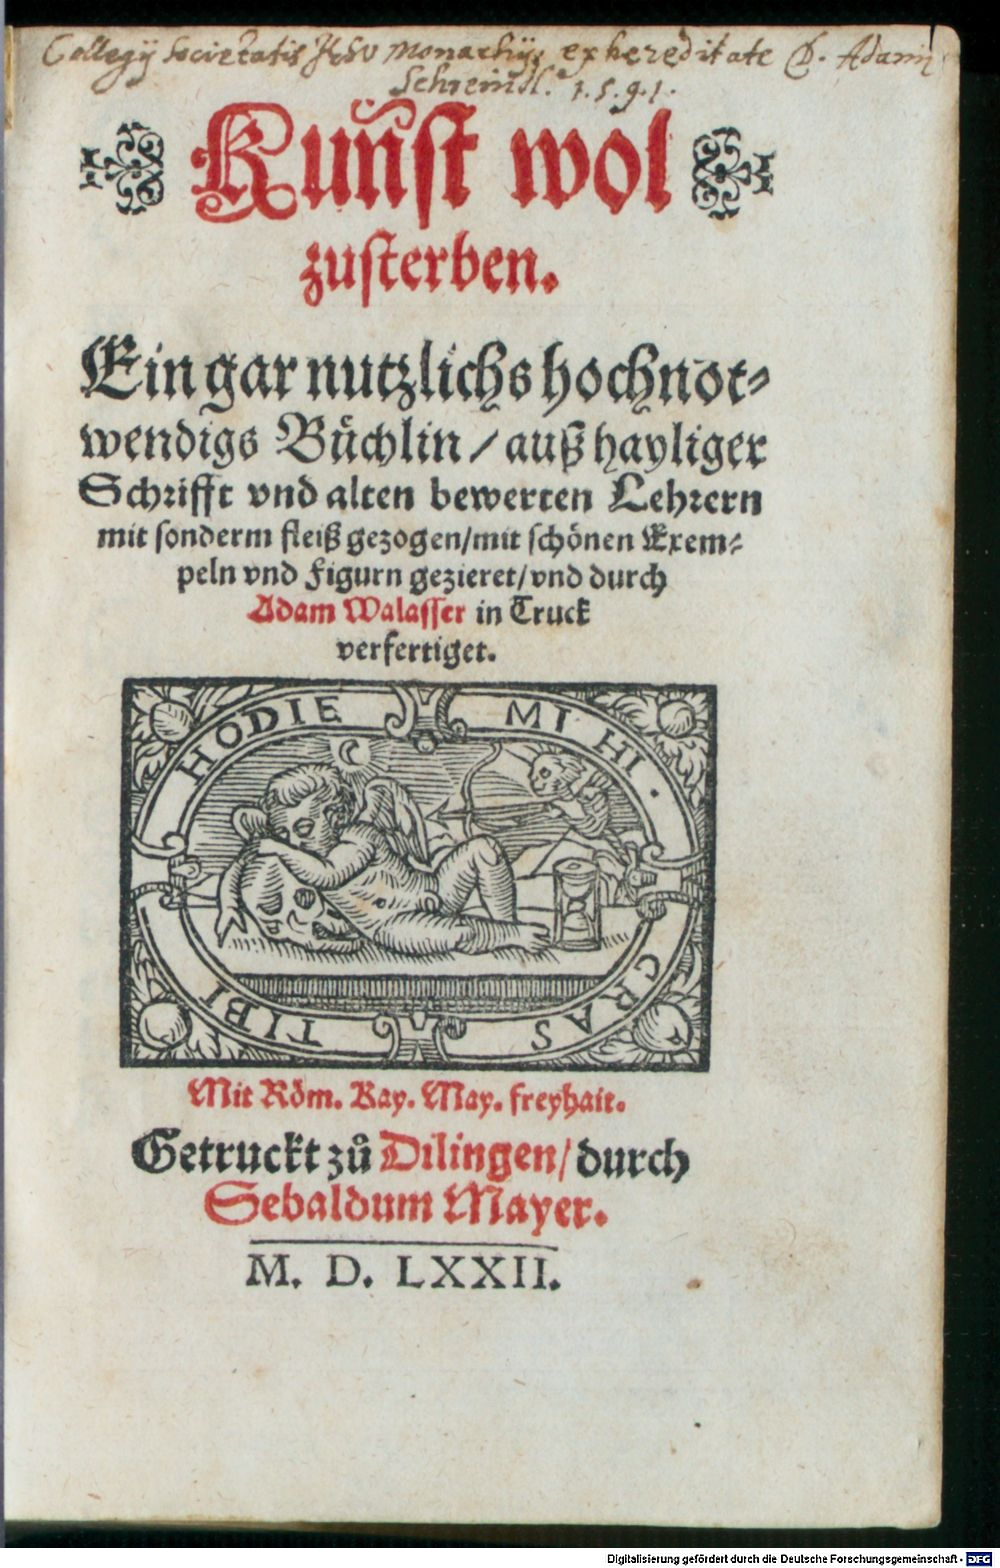 Collegij Societatis Jesu Monachij, ex hereditate D. Adami
Schreindl. 1.5.9.1.
Kunst wol
zusterben.
Ein gar nutzlichs hochnot-
wendigs Bůchlin / auß hayliger
Schrifft vnd alten bewerten Lehrern
mit sonderm fleiß gezogen/mit schönen Exem-
peln vnd Figurn gezieret/vnd durch
Adam Walasser in Truck
verfertiget.
HODIE MIHI.
CRAS TIBI
Mit Röm. Kay. May. freyhait.
Getruckt zů Dilingen/durch
Sebaldum Mayer.
M. D. LXXII.
Digitalisierung gefördert durch die Deutsche Forschungsgemeinschaft - DFG